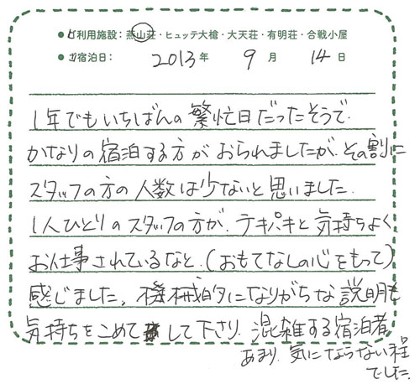 ●ご利用施設：燕山荘・ヒュッテ大槍・大天荘・有明荘・合戦小屋
●ご宿泊日：2013年 9月 14日
1年でもいちばんの繁忙日だったそうで
かなりの宿泊する方がおられましたが、その割に
スタッフの方の人数は少ないと思いました.
1人ひとりのスタッフの方が、テキパキと気持ちよく
お仕事されているなと、(おもてなしの心をもって)
感じました。機械的になりがちな説明も
気持ちをこめて して下さり、混雑する宿泊者
あまり、気にならない程
でした.